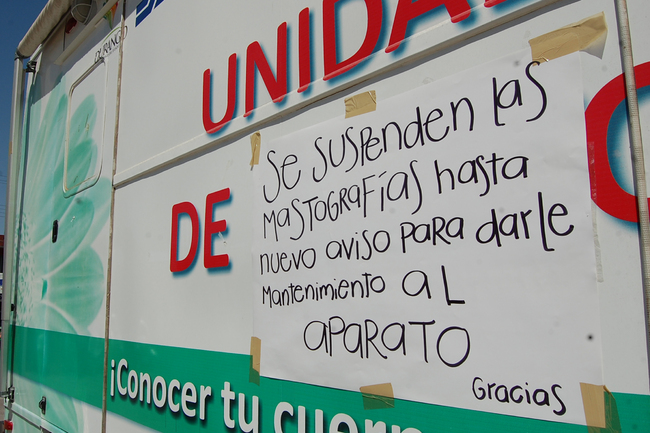 DURANGO
UNIDAD
DE
Se suspenden las
MASTOGRAFÍAS hasta
nuevo aviso para darle
Mantenimiento AL
APARATO
Gracias
¡Conocer tu cuerp